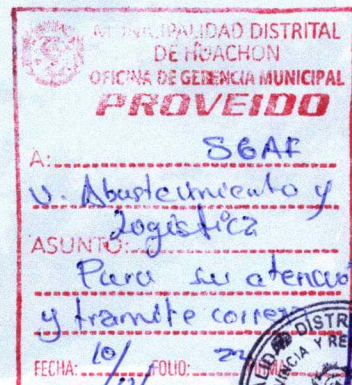 MUNICIPALIDAD DISTRITAL
DE HUACHON
OFICINA DE GERENCIA MUNICIPAL
PROVEIDO
A: SGAF
U. Abastecimiento y
Logística
ASUNTO:
Para su atención
y tramite corres
DISTR
Y RE
FECHA: 10/ FOLIO: